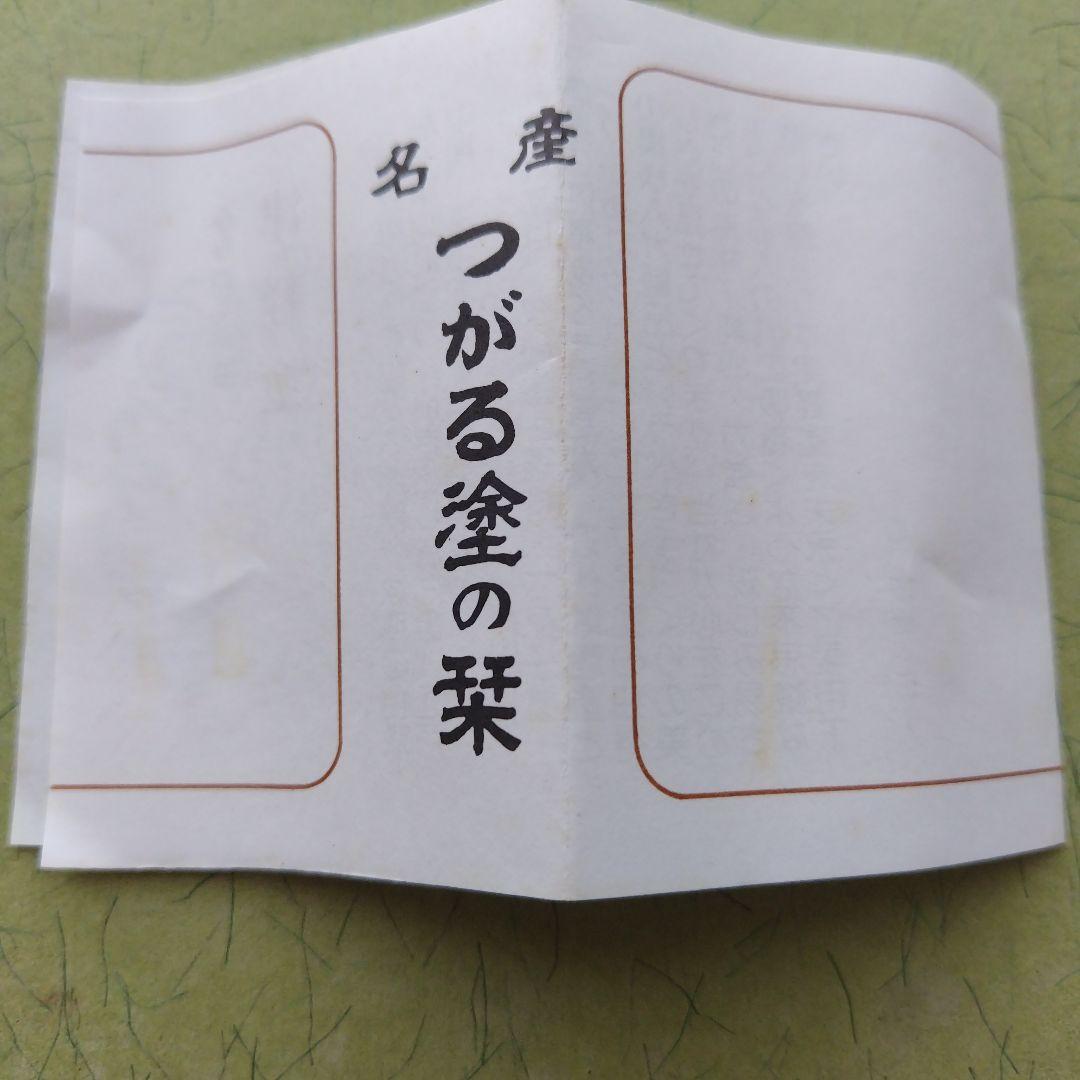 名産
つがる塗の栞